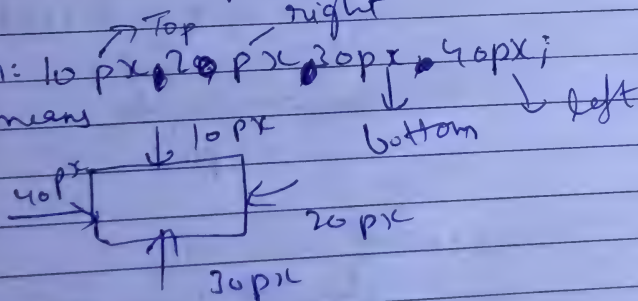 Top right
: 10px, 20px, 30px, 40px;
means
bottom left
10px
40px
20px
30px